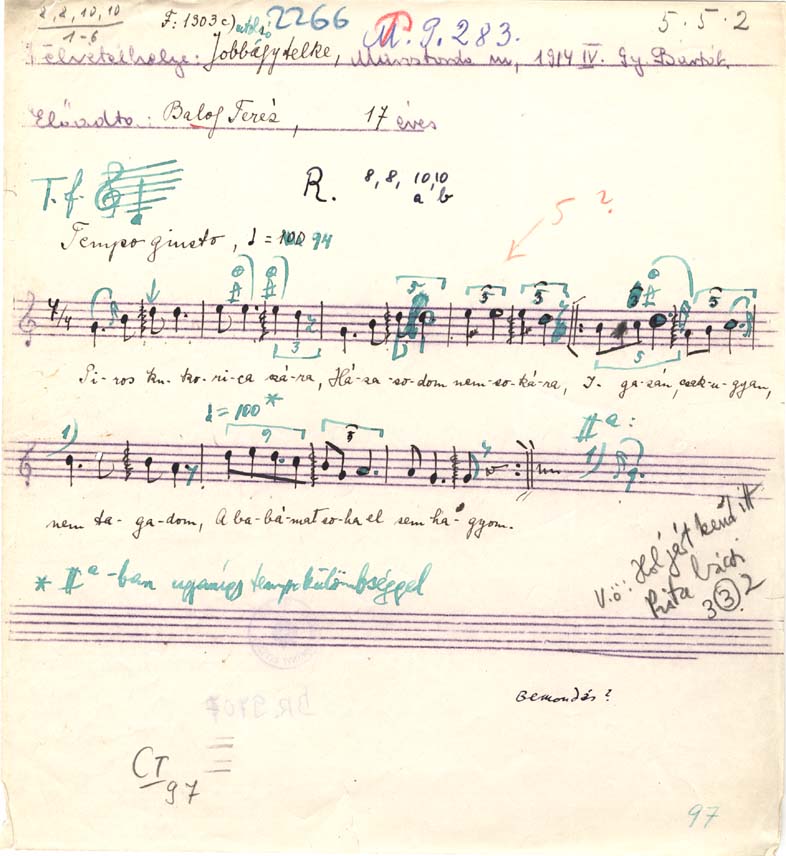 8, 8, 10, 10 F: 1303 c) utolsó 2266 M. P. 283. 5 - 5 - 2
1-6
Felvétel helye: Jobbágytelke, Marostorda m, 1914 IV. Gy. Bartók
Előadta: Balog Teréz, 17 éves
T. f. R. 8, 8, 10, 10
a b
5 ?
Tempo giusto, ♩ = 100 94
4/4 5 5 5 3 5
3 5
Pi-ros ku-ko-ri-ca szá-ra, Há-za-so-dom nem-so-ká-ra, I-ga-zán, csak-u-gyan,
♩ = 100 *
1) 9 5 IIa:
1)
nem ta-ga-dom, A ba-bá-mat so-ha el sem ha-gyom.
* IIa-ban ugyanígy tempókülömbséggel
V.ö: Hol járt kend itt
Pista bácsi
3 3 2
BR. 9707
Bemondás?
CT
97
97